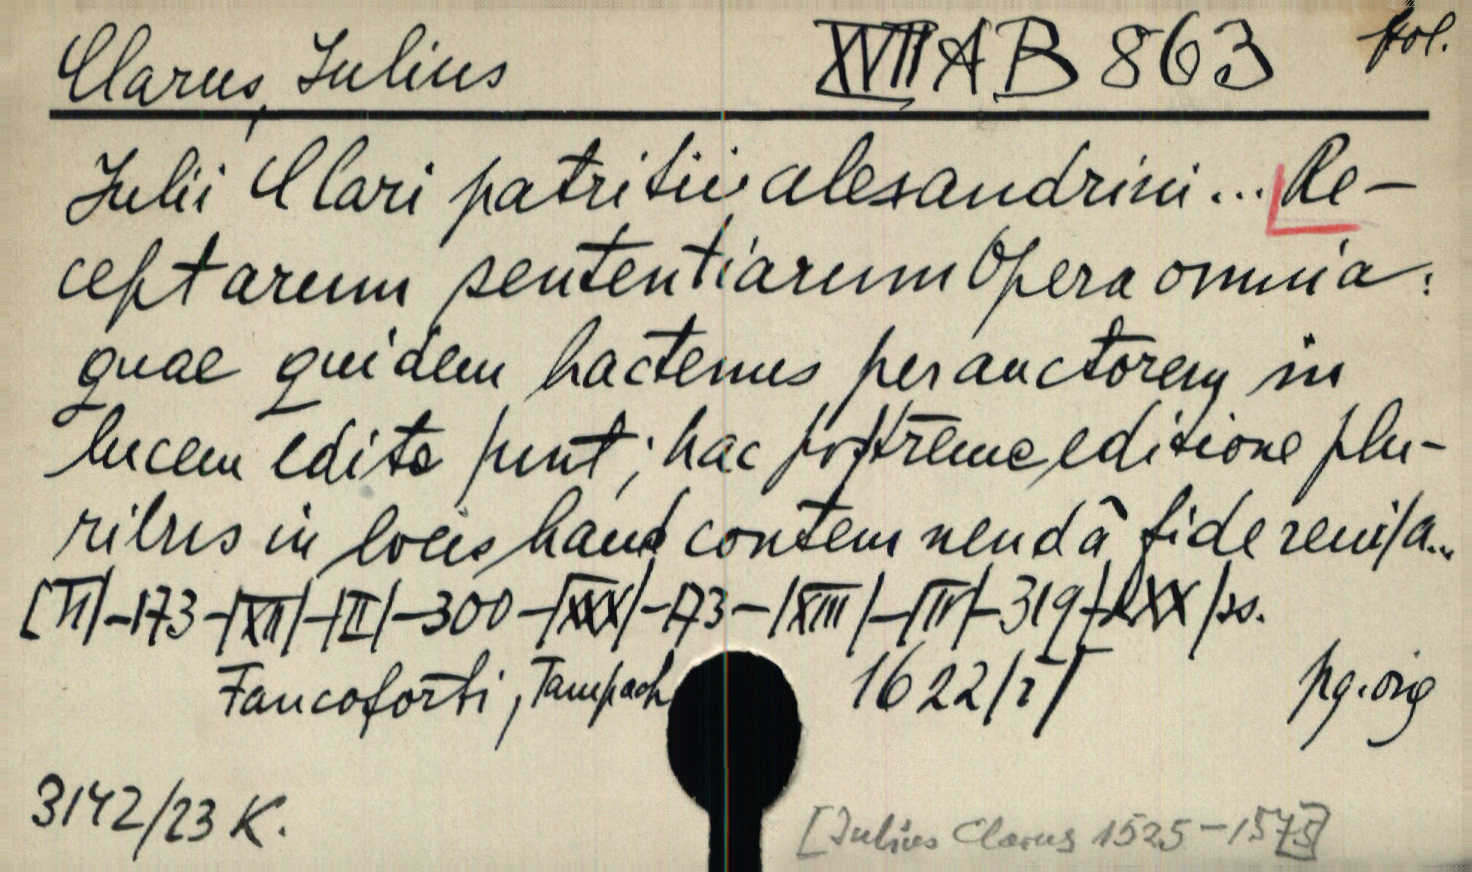 Clarus, Julius XVII AB 863 fol.
Julii Clari patritii alesandrini... Re-
ceptarum sententiarum Opera omnia:
quae quidem hactenus per auctorem in
lucem edita sunt; hac postrema editione plu-
ribus in locis haud contemnendâ fide revisa...
[VI]-173-|XII|-|II|-300-|XXX|-173-|XIII|-|IV|-319-LXX|ss.
Fancoforti, Tampach 1622/r/ pg. orig
3142/23 K.
[Julius Clarus 1525-1575]